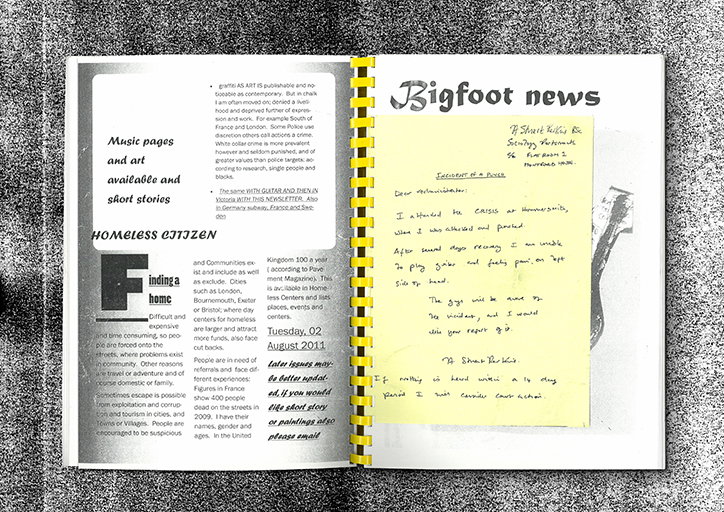 Music pages
and art
available and
short stories
• graffiti AS ART IS publishable and no-
ticeable as contemporary. But in chalk
I am often moved on; denied a liveli-
hood and deprived further of expres-
sion and work. For example South of
France and London. Some Police use
discretion others call actions a crime.
White collar crime is more prevalent
however and seldom punished, and of
greater values than police targets; ac-
cording to research, single people and
blacks.
• The same WITH GUITAR AND THEN IN
Victoria WITH THIS NEWSLETTER. Also
in Germany subway, France and Swe-
den
HOMELESS CITIZEN
Finding a
home
Difficult and
expensive
and time consuming, so peo-
ple are forced onto the
streets, where problems exist
in community. Other reasons
are travel or adventure and of
course domestic or family.
Sometimes escape is possible
from exploitation and corrup-
tion and tourism in cities, and
Towns or Villages. People are
encouraged to be suspicious
and Communities ex-
ist and include as well
as exclude. Cities
such as London,
Bournemouth, Exeter
or Bristol; where day
centers for homeless
are larger and attract
more funds, also face
cut backs.
People are in need of
referrals and face dif-
ferent experiences:
Figures in France
show 400 people
dead on the streets in
2009. I have their
names, gender and
ages. In the United
Kingdom 100 a year
( according to Pave-
ment Magazine). This
is available in Home-
less Centers and lists
places, events and
centers.
Tuesday, 02
August 2011
Later issues may-
be better updat-
ed, if you would
like short story
or paintings also
please email
Bigfoot news
Stuart
Sociology Portsmouth
56 FLAT ROOM 2
INCIDENT OF A PUNCH
Dear Administrator:
I attended the CRISIS at Hammersmith,
when I was attacked and punched.
After several days recovery I am unable
to play guitar and feeling pain, on left
side of hand.
The guys will be aware of
the incident, and I would
like your report of it.
Stuart
If nothing is heard within a 14 day
period I will consider Court Action.